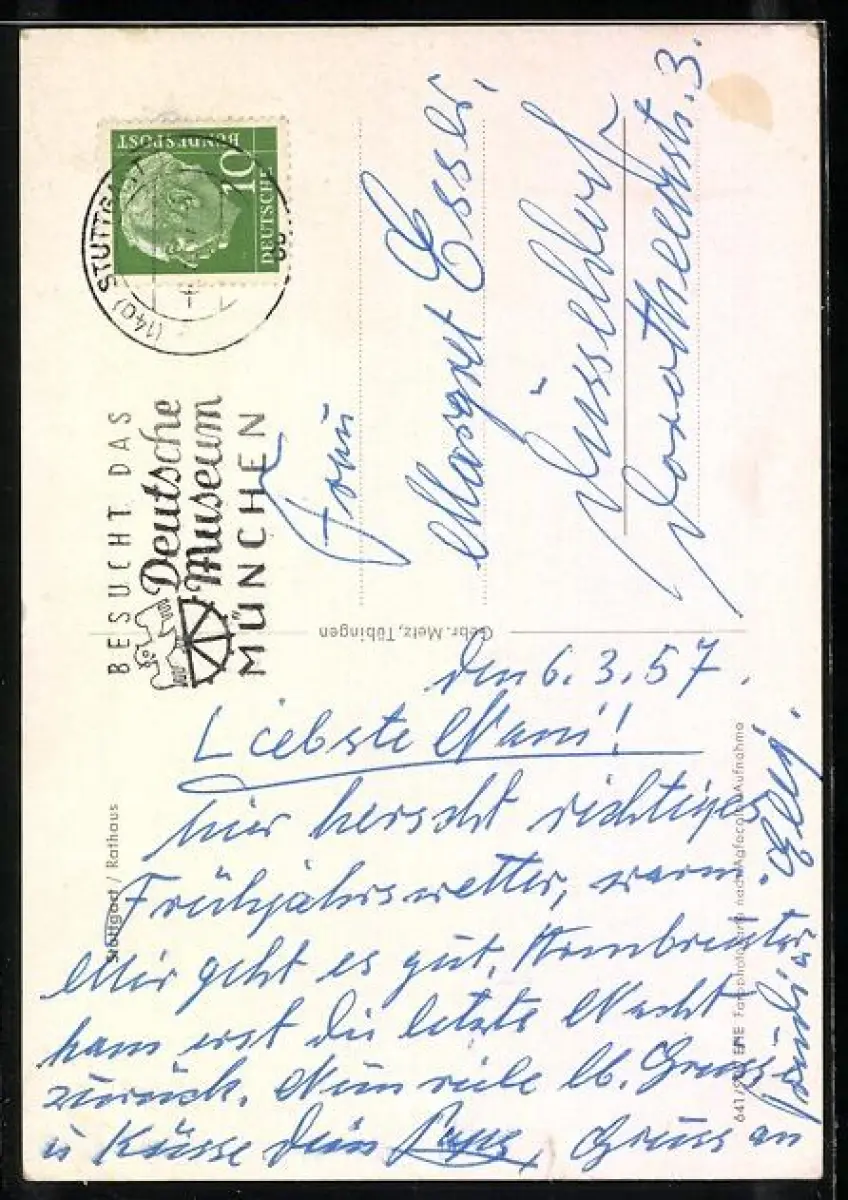 DEUTSCHE
BUNDESPOST
10
(14a) STUTTGART
BESUCHT DAS
Deutsche
Museum
MÜNCHEN
Frau
Margret Esser,
Düsseldorf
Dorotheenstr. 3.
Gebr. Metz, Tübingen
Stuttgart / Rathaus
den 6.3.57.
Liebste Mani!
hier herscht richtiges
Frühjahrswetter, warm.
Mir geht es gut,
kam erst die letzte Nacht
zurück. Nun viele lb. Gruss
u Küsse Dein Paps, Gruss an
641/ EHE Farbphoto nach Agfacolor-Aufnahme